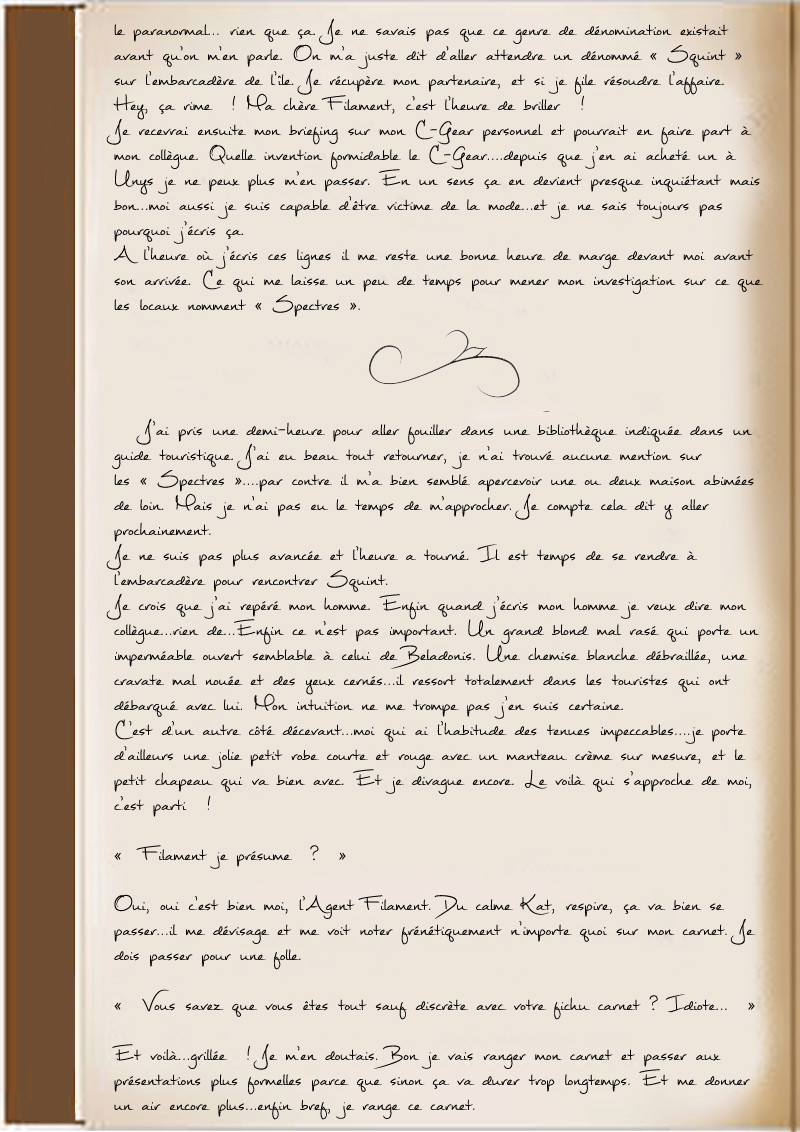 le paranormal... rien que ça. Je ne savais pas que ce genre de dénomination existait
avant qu'on m'en parle. On m'a juste dit d'aller attendre un dénommé « Squint »
sur l'embarcadère de l'île. Je récupère mon partenaire, et si je file résoudre l'affaire.
Hey, ça rime ! Ma chère Filament, c'est l'heure de briller !
Je recevrai ensuite mon briefing sur mon C-Gear personnel et pourrait en faire part à
mon collègue. Quelle invention formidable le C-Gear....depuis que j'en ai acheté un à
Unys je ne peux plus m'en passer. En un sens ça en devient presque inquiétant mais
bon...moi aussi je suis capable d'être victime de la mode...et je ne sais toujours pas
pourquoi j'écris ça.
A l'heure où j'écris ces lignes il me reste une bonne heure de marge devant moi avant
son arrivée. Ce qui me laisse un peu de temps pour mener mon investigation sur ce que
les locaux nomment « Spectres ».
J'ai pris une demi-heure pour aller fouiller dans une bibliothèque indiquée dans un
guide touristique. J'ai eu beau tout retourner, je n'ai trouvé aucune mention sur
les « Spectres »....par contre il m'a bien semblé apercevoir une ou deux maison abimées
de loin. Mais je n'ai pas eu le temps de m'approcher. Je compte cela dit y aller
prochainement.
Je ne suis pas plus avancée et l'heure a tourné. Il est temps de se rendre à
l'embarcadère pour rencontrer Squint.
Je crois que j'ai repéré mon homme. Enfin quand j'écris mon homme je veux dire mon
collègue...rien de...Enfin ce n'est pas important. Un grand blond mal rasé qui porte un
imperméable ouvert semblable à celui de Beladonis. Une chemise blanche débraillée, une
cravate mal nouée et des yeux cernés...il ressort totalement dans les touristes qui ont
débarqué avec lui. Mon intuition ne me trompe pas j'en suis certaine.
C'est d'un autre côté décevant...moi qui ai l'habitude des tenues impeccables....je porte
d'ailleurs une jolie petit robe courte et rouge avec un manteau crème sur mesure, et le
petit chapeau qui va bien avec. Et je divague encore. Le voilà qui s'approche de moi,
c'est parti !
« Filament je présume ? »
Oui, oui c'est bien moi, l'Agent Filament. Du calme Kat, respire, ça va bien se
passer...il me dévisage et me voit noter frénétiquement n'importe quoi sur mon carnet. Je
dois passer pour une folle.
« Vous savez que vous êtes tout sauf discrète avec votre fichu carnet ? Idiote... »
Et voilà...grillée ! Je m'en doutais. Bon je vais ranger mon carnet et passer aux
présentations plus formelles parce que sinon ça va durer trop longtemps. Et me donner
un air encore plus...enfin bref, je range ce carnet.